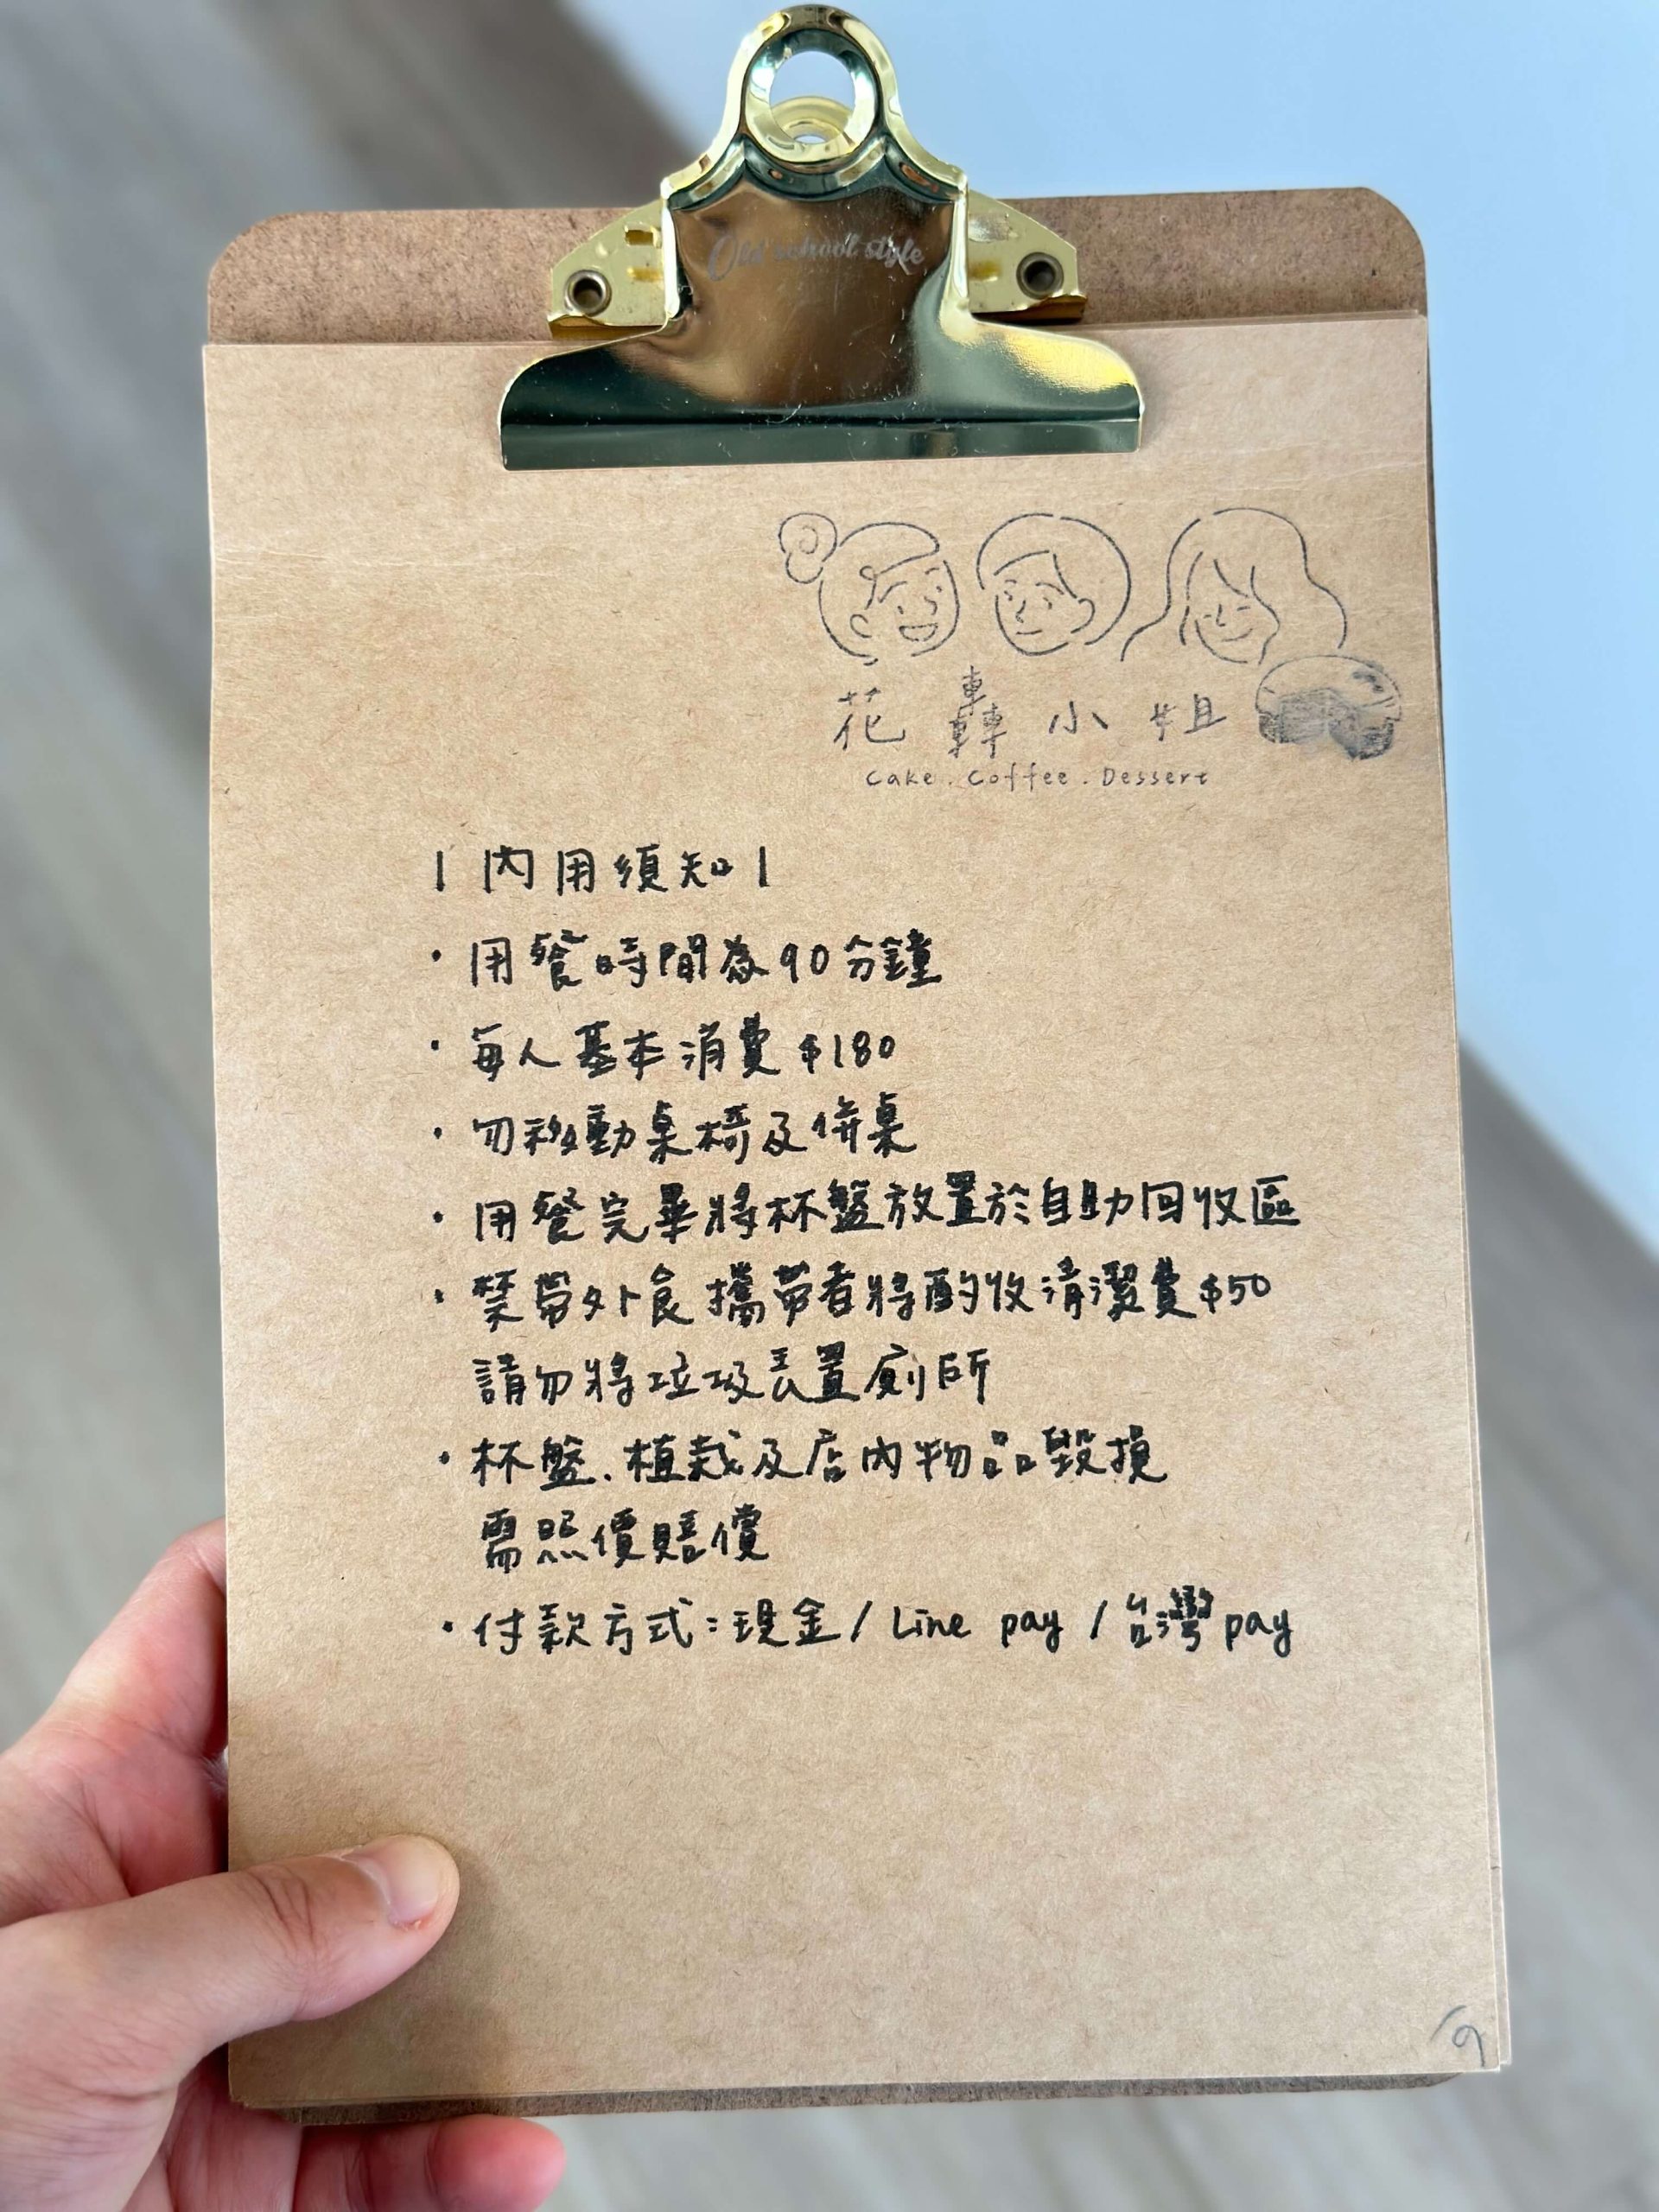 Old school style
花轟小姐
Cake . Coffee . Dessert
| 內用須知 |
・用餐時間為90分鐘
・每人基本消費$180
・勿移動桌椅及併桌
・用餐完畢將杯盤放置於自助回收區
・禁帶外食攜帶者將酌收清潔費$50
請勿將垃圾丟置廁所
・杯盤、植栽及店內物品毀損
需照價賠償
・付款方式:現金/Line pay/台灣pay
9